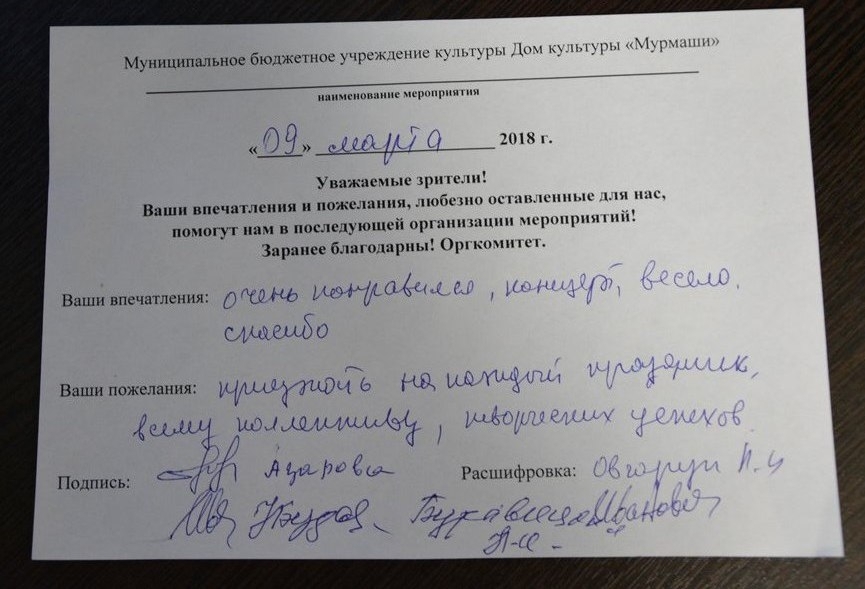 Муниципальное бюджетное учреждение культуры Дом культуры «Мурмаши»
наименование мероприятия
«09» марта 2018 г.
Уважаемые зрители!
Ваши впечатления и пожелания, любезно оставленные для нас,
помогут нам в последующей организации мероприятий!
Заранее благодарны! Оргкомитет.
Ваши впечатления: очень понравился, концерт, весело.
спасибо
Ваши пожелания: приезжать на каждый праздник,
всему коллективу, творческих успехов.
Подпись: Азарова Расшифровка: